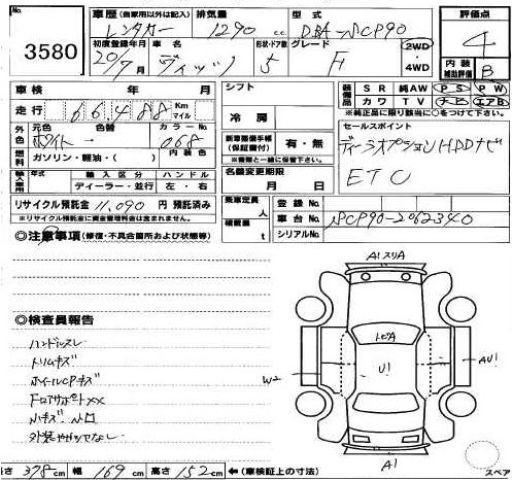 No.
3580
車歴 (自家用以外は記入) 排気量 型式
レンタカー 1290 cc DBA-SCP90
初度登録年月 車名 形状・ドア数 グレード
20/7月 ヴィッツ 5 F
2WD
4WD
評価点
4
内装
補助評価 B
車検 年 月
走行 66,488 Km マイル
外色 元色 色替 カラーNo.
ホワイト - 068
内装色
燃料 ガソリン・軽油・( )
輸入車用 年式 輸入区分 ハンドル
ディーラー・並行 左・右
リサイクル預託金 11,090 円 預託済み
※リサイクル預託金に資金管理料金は含まれません。
シフト
冷房
新車整備手帳
(保証書付) 有・無
※書類と一緒に保管下さい。
名義変更期限
月 日
乗車定員 人
積載量 t
装備品 SR 純AW PS PW
カワ TV ナビ エアB
※純正品に限り該当に○をつけて下さい。
セールスポイント
ディーラオプションHDDナビ
ETC
登録No.
車台No. SCP90-2062340
シリアルNo.
◎注意事項(修復・不具合箇所および状態等)
◎検査員報告
ハンドルスレ
トリムキズ
ホイールCPキズ
FロアサポートXX
小キズ・凹
A1スリA
U1
W2
AU1
A1
スペア
長さ 378cm 幅 169cm 高さ 152cm ←(車検証上の寸法)